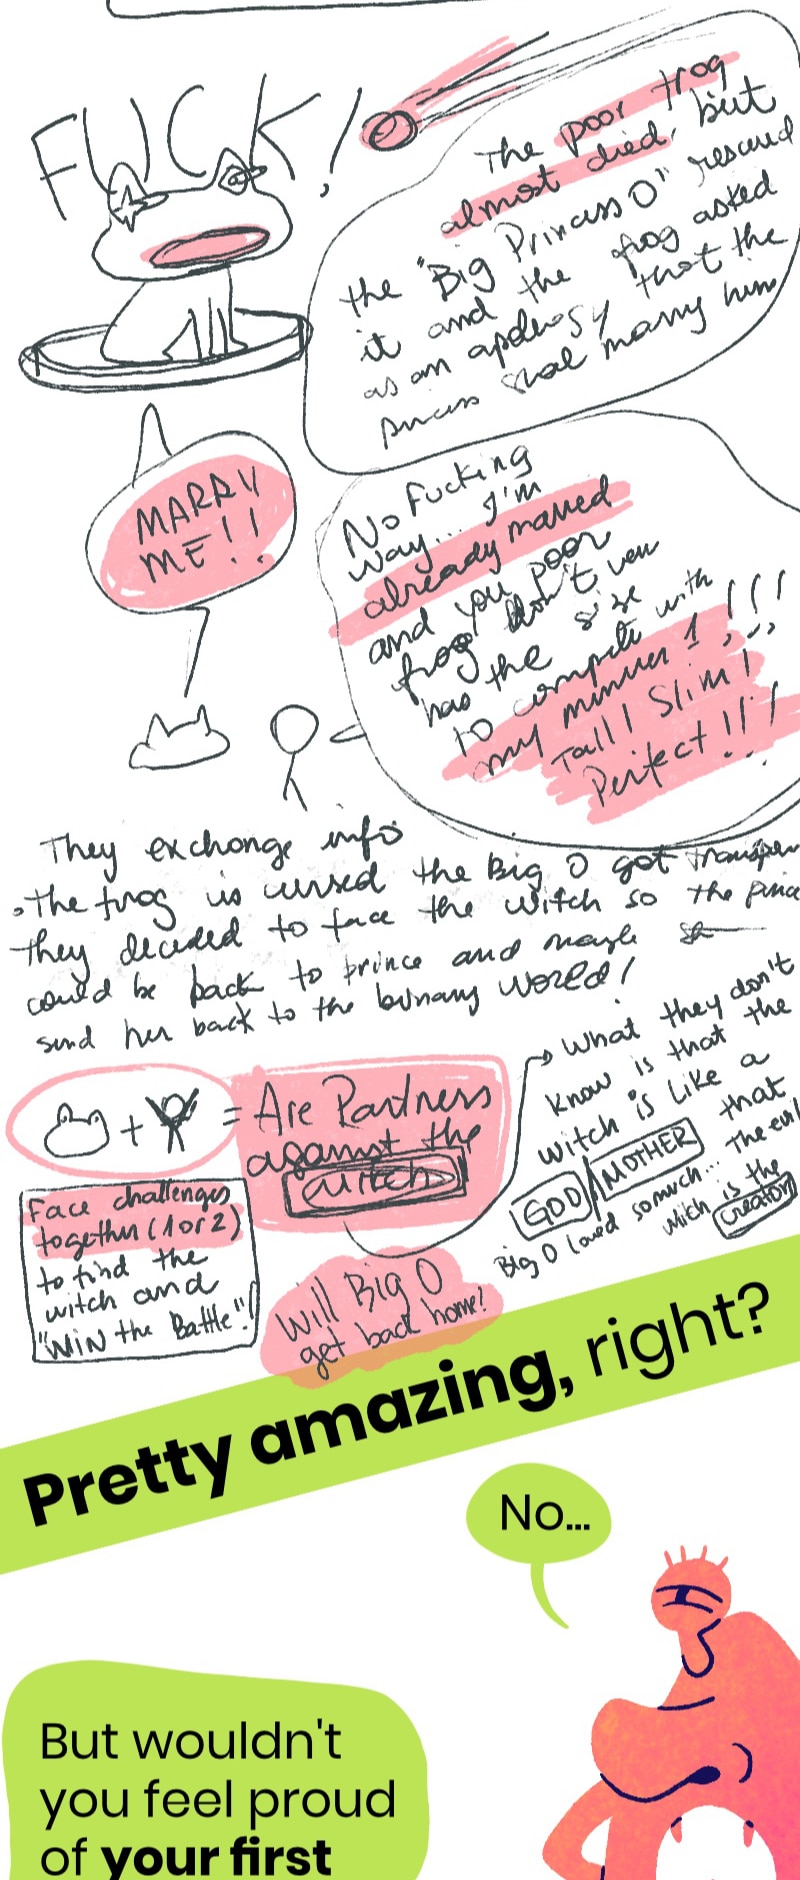 FUCK!
The poor frog
almost died, but
the "Big Princess O" rescued
it and the frog asked
as an apology that the
princess shal marry him
MARRY
ME!!
No Fucking
way... I'm
already married
and you poor
frog don't
has the size
to compete with
my minus 1!!!
Tall! Slim!
Perfect!!!
They exchange info
. The frog is cursed the Big O got
They decided to face the witch so the
could be back to prince and maybe
send her back to the world!
+ = Are Partners
against the
witch
What they don't
know is that the
witch is like a
GOD / MOTHER that
Big O loved so much... The evil
witch is the
creator
Face challenges
together (1 or 2)
to find the
witch and
"WIN the Battle"!
Will Big O
get back home?
Pretty amazing, right?
No...
But wouldn't
you feel proud
of your first